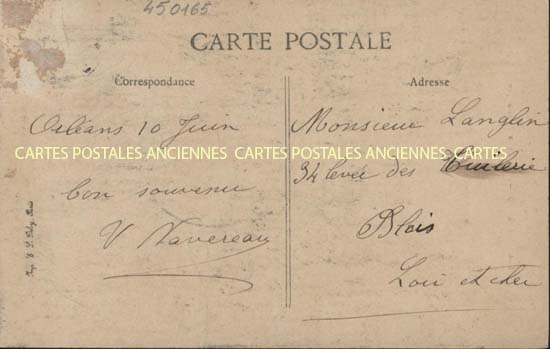 450165
CARTE POSTALE
Correspondance
Adresse
Orléans 10 Juin
bon souvenir
V Navereau
Monsieur Langlin
34 levée des Tuilerie
Blois
Loir et cher
CARTES POSTALES ANCIENNES CARTES POSTALES ANCIENNES CARTES
Imp.